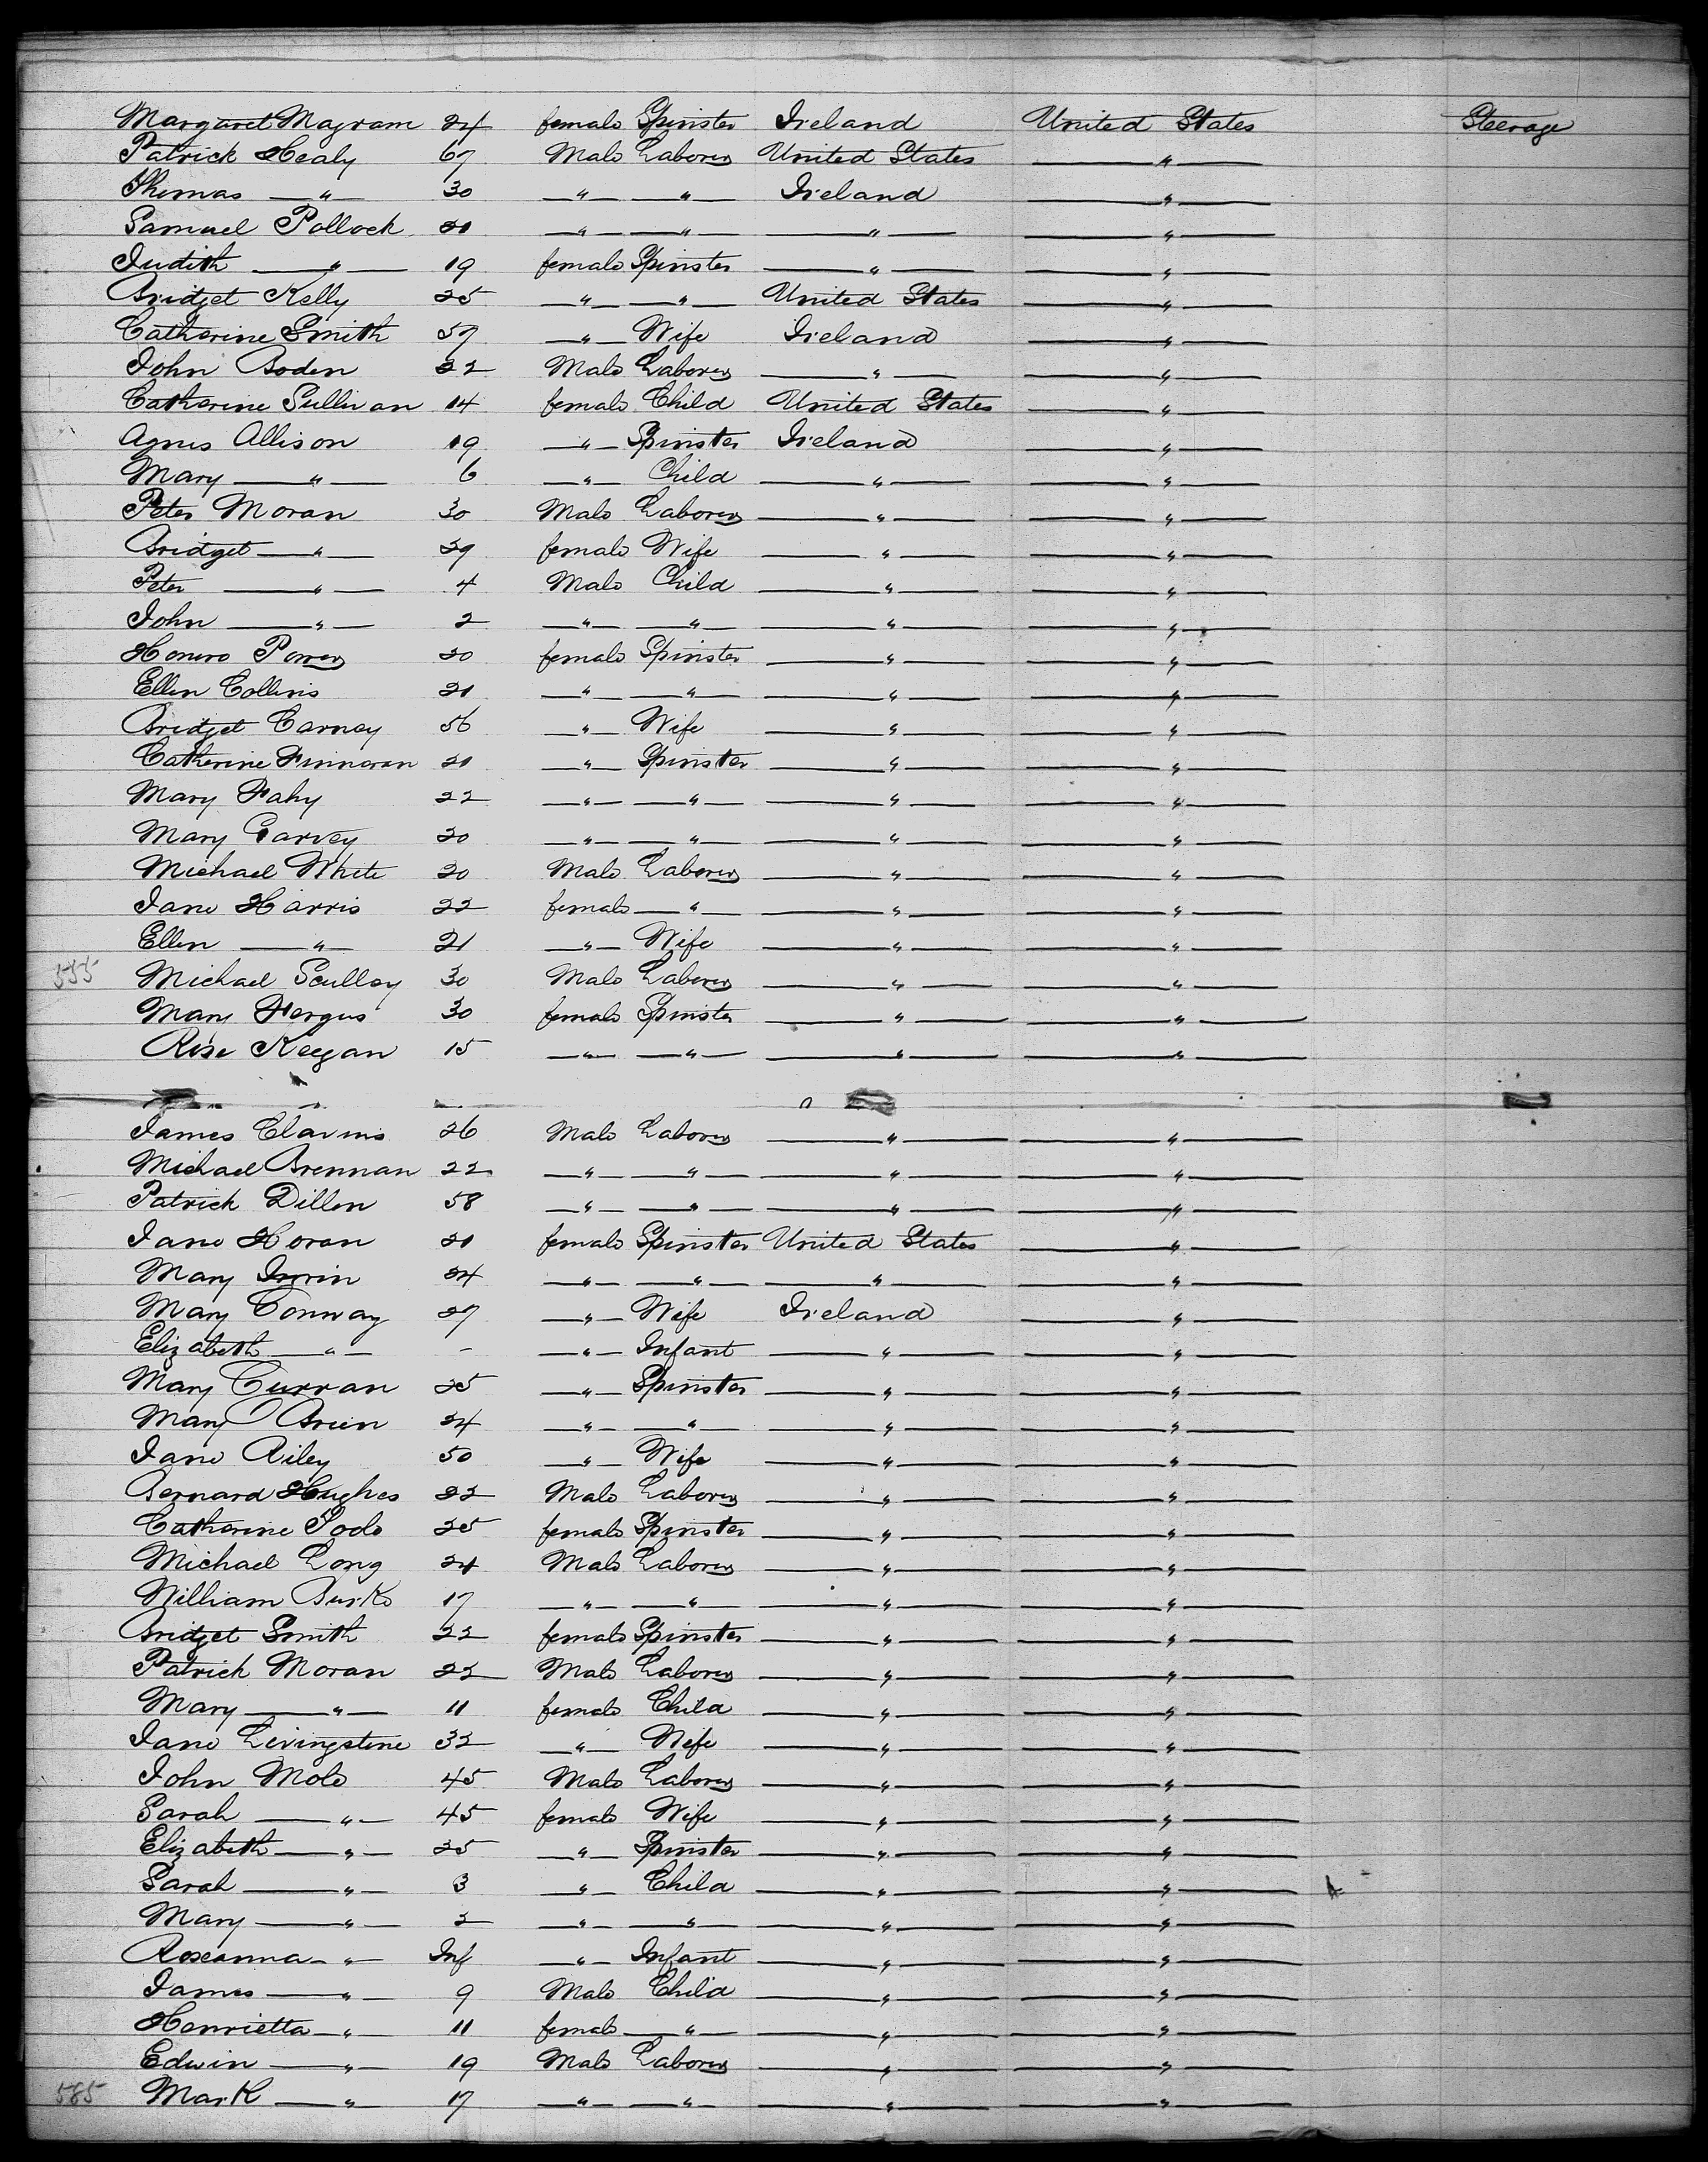 Margaret Magram 24 female Spinster Ireland United States Steerage
Patrick Healy 67 Male Laborer United States — " —
Thomas — " — 30 — " — — " — Ireland — " —
Samuel Pollock 21 — " — — " — — " — — " —
Judith — " — 19 female Spinster — " — — " —
Bridget Kelly 25 — " — — " — United States — " —
Catherine Smith 57 — " — Wife Ireland — " —
John Boden 22 Male Laborer — " — — " —
Catherine Sullivan 14 female Child United States — " —
Agnes Allison 19 — " — Spinster Ireland — " —
Mary — " — 6 — " — Child — " — — " —
Peter Moran 30 Male Laborer — " — — " —
Bridget — " — 29 female Wife — " — — " —
Peter — " — 4 Male Child — " — — " —
John — " — 2 — " — — " — — " — — " —
Honora Power 20 female Spinster — " — — " —
Ellen Collins 21 — " — — " — — " — — " —
Bridget Carney 56 — " — Wife — " — — " —
Catherine Finneran 21 — " — Spinster — " — — " —
Mary Fahy 22 — " — — " — — " — — " —
Mary Garvey 20 — " — — " — — " — — " —
Michael White 20 Male Laborer — " — — " —
Jane Harris 22 female — " — — " — — " —
Ellen — " — 21 — " — Wife — " — — " —
555 Michael Sculley 30 Male Laborer — " — — " —
Mary Fergus 30 female Spinster — " — — " —
Rose Keegan 15 — " — — " — — " — — " —
James Clavins 26 Male Laborer — " — — " —
Michael Brennan 22 — " — — " — — " — — " —
Patrick Dillon 58 — " — — " — — " — — " —
Jane Horan 21 female Spinster United States — " —
Mary Irwin 24 — " — — " — — " — — " —
Mary Conway 27 — " — Wife Ireland — " —
Elizabeth — " — - — " — Infant — " — — " —
Mary Curran 25 — " — Spinster — " — — " —
Mary O Brien 24 — " — — " — — " — — " —
Jane Riley 50 — " — Wife — " — — " —
Bernard Hughes 22 Male Laborer — " — — " —
Catherine 25 female Spinster — " — — " —
Michael Long 24 Male Laborer — " — — " —
William Burke 17 — " — — " — — " — — " —
Bridget Smith 22 female Spinster — " — — " —
Patrick Moran 22 Male Laborer — " — — " —
Mary — " — 11 female Child — " — — " —
Jane Livingstone 32 — " — Wife — " — — " —
John Mole 45 Male Laborer — " — — " —
Sarah — " — 45 female Wife — " — — " —
Elizabeth — " — 25 — " — Spinster — " — — " —
Sarah — " — 3 — " — Child — " — — " —
Mary — " — 2 — " — — " — — " — — " —
Roseanna — " — Inf — " — Infant — " — — " —
James — " — 9 Male Child — " — — " —
Henrietta — " — 11 female — " — — " — — " —
Edwin — " — 19 Male Laborer — " — — " —
585 Mark — " — 17 — " — — " — — " — — " —